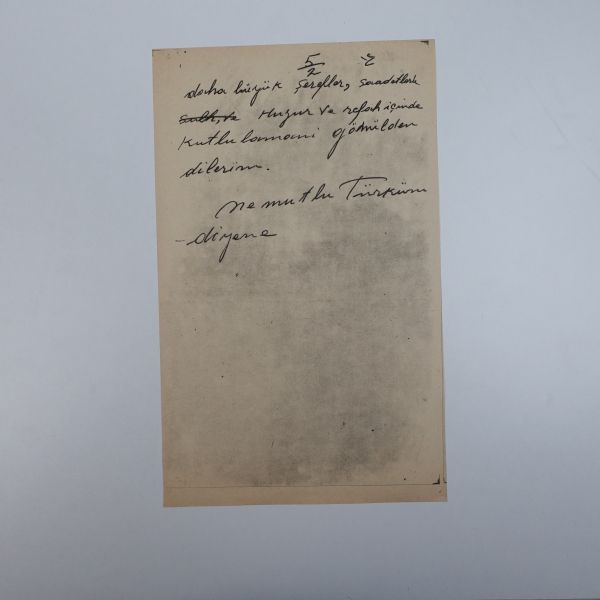 5/2
daha büyük şerefler, saadetlerle
huzur ve refah içinde
kutlulamanı gönülden
dilerim.
Ne mutlu Türküm
diyene